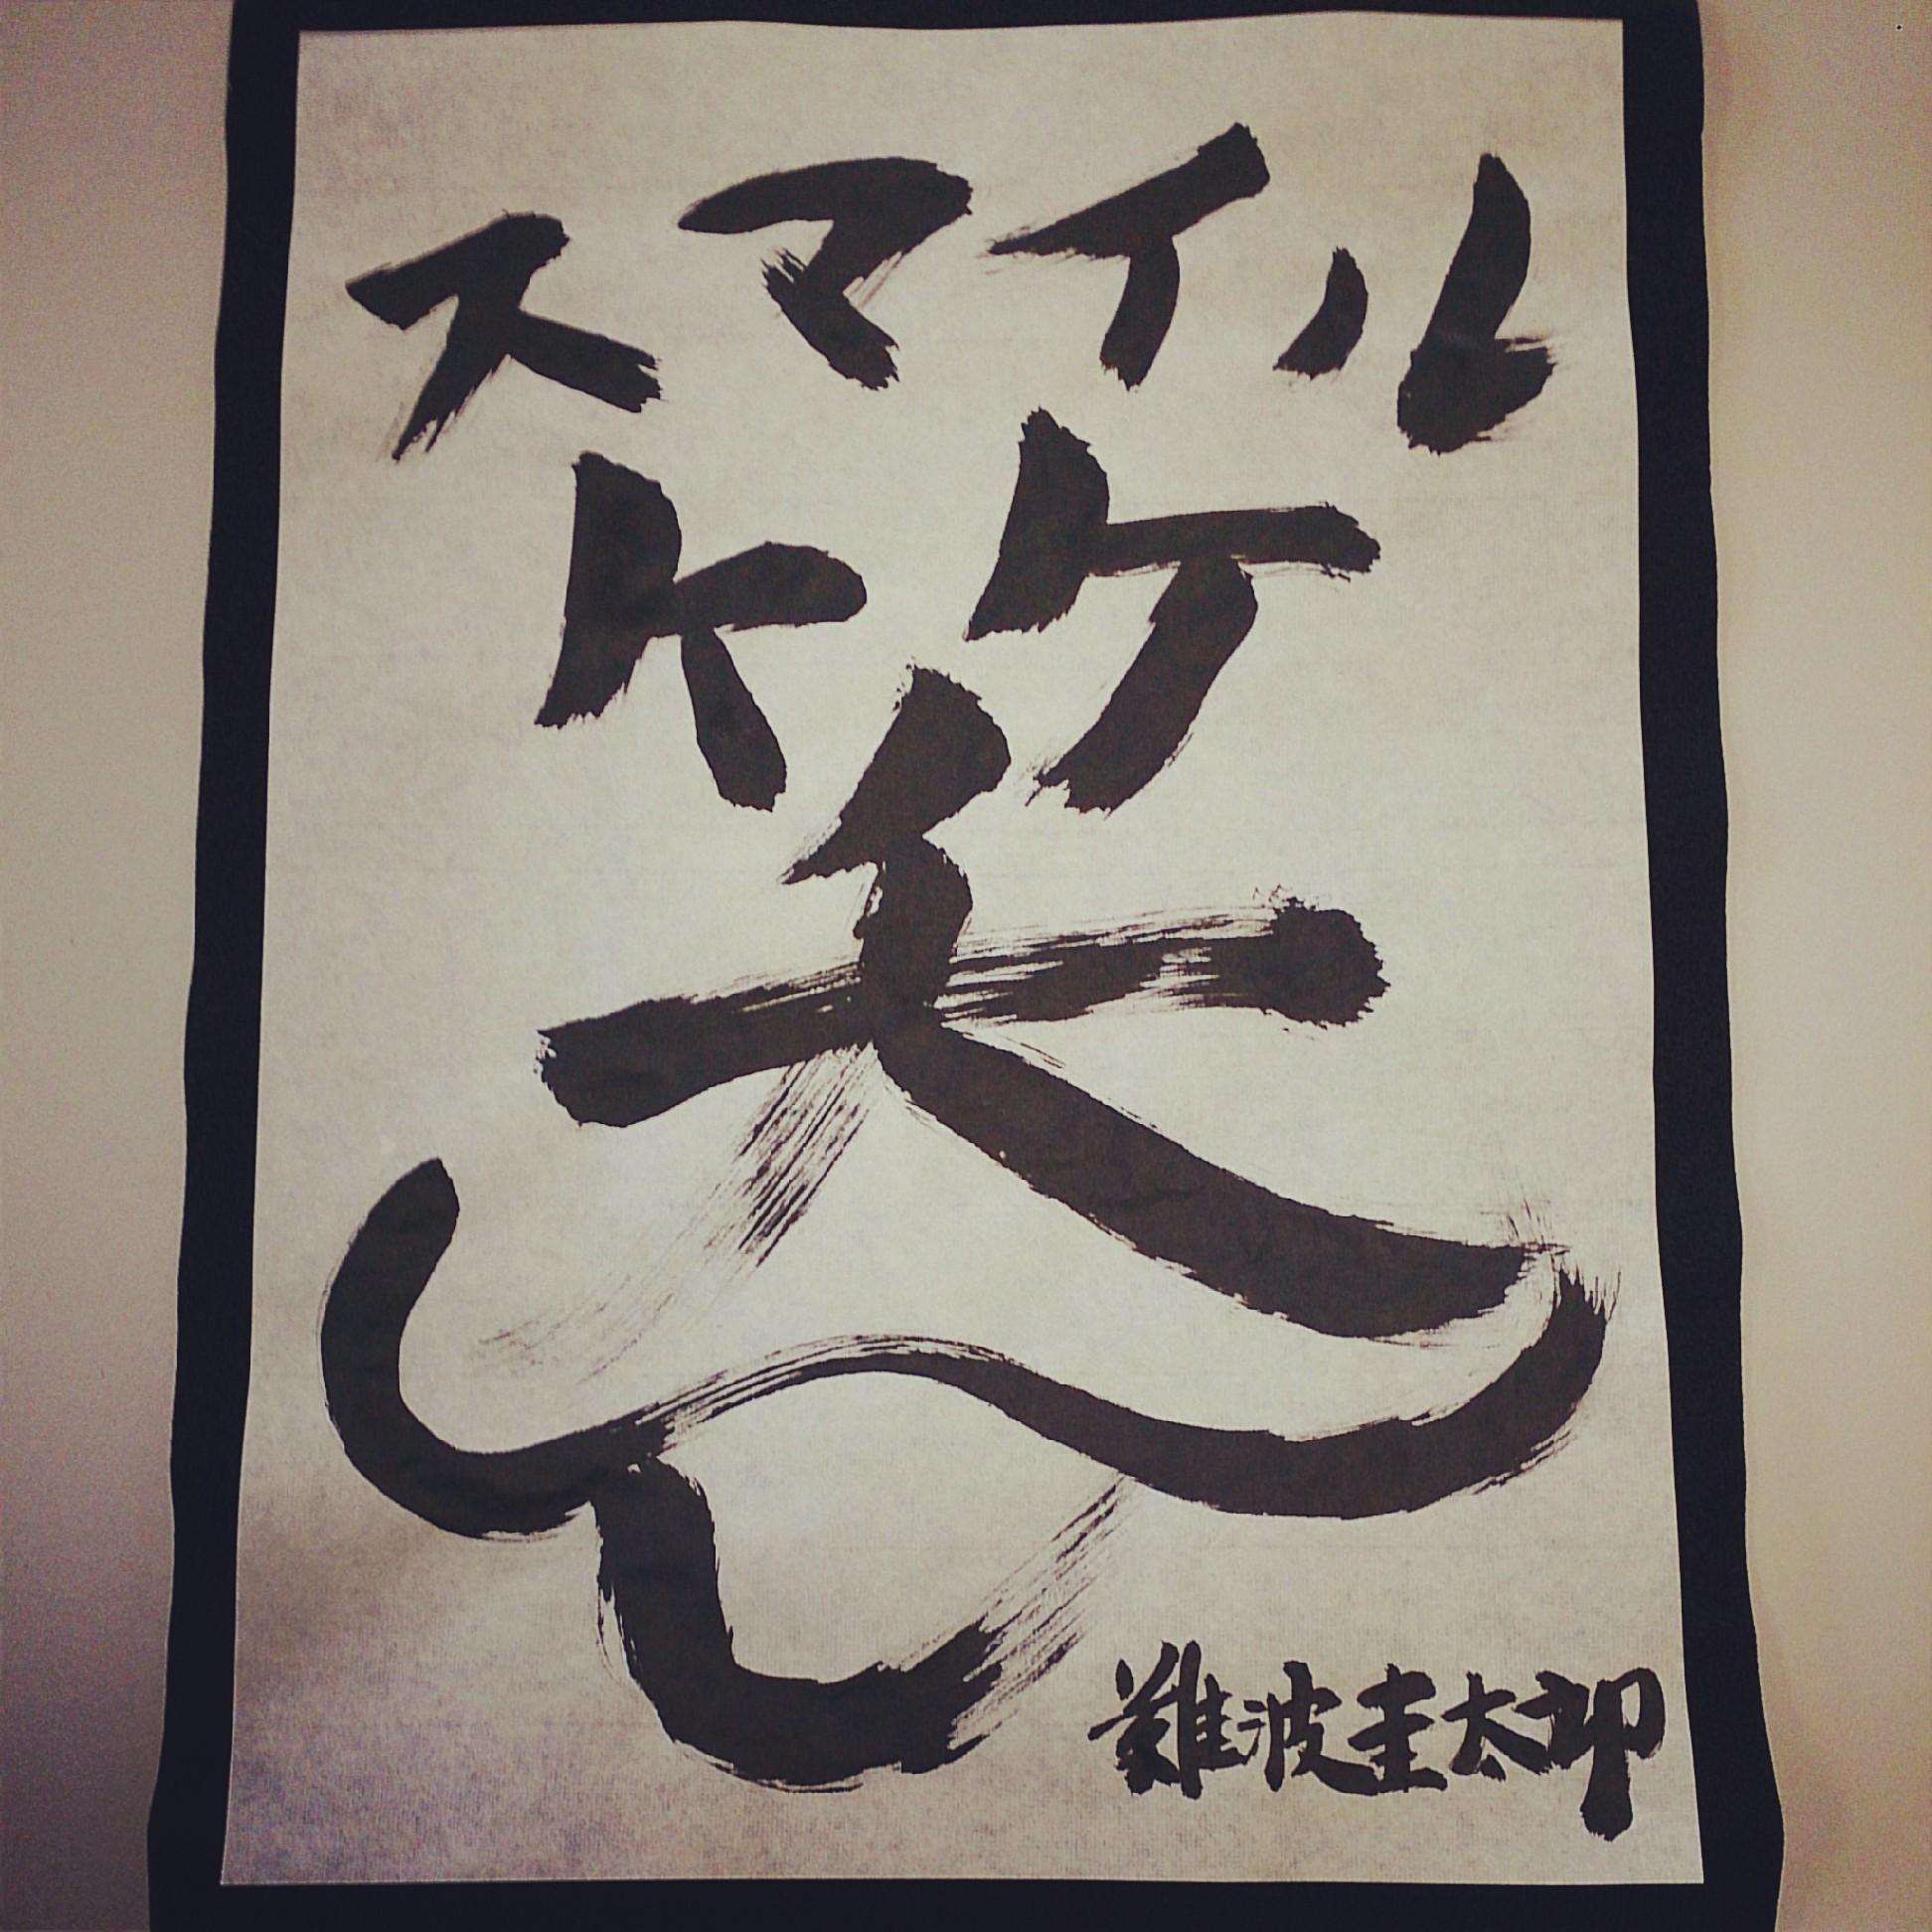 スマイル
笑
難波圭太郎